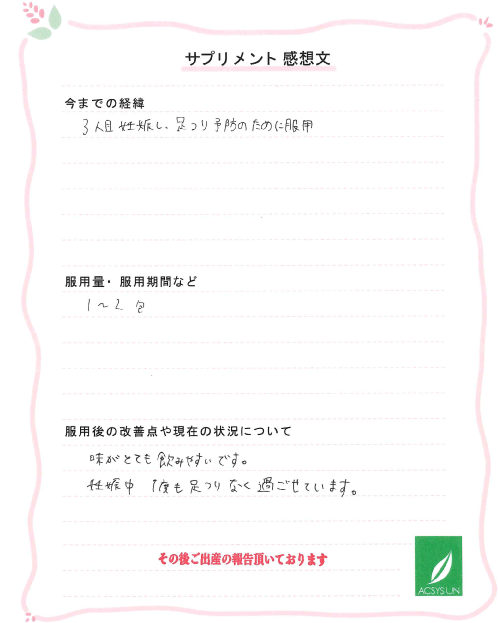 サプリメント 感想文
今までの経緯
3人目妊娠し、足つり予防のために服用
服用量・服用期間など
1〜2 包
服用後の改善点や現在の状況について
味がとても飲みやすいです。
妊娠中 1度も足つりなく過ごせています。
その後ご出産の報告頂いております
ACSYSUN